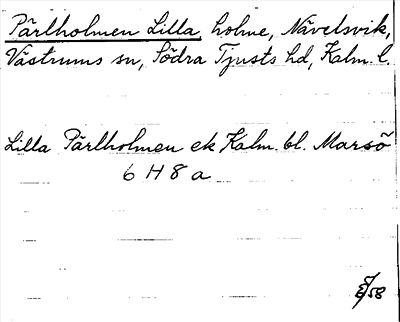 Pärlholmen Lilla, holme, Nävelsvik,
Västrums sn, Södra Tjusts hd, Kalm. l.
Lilla Pärlholmen ek Kalm. bl. Marsö
6 H 8 a
58